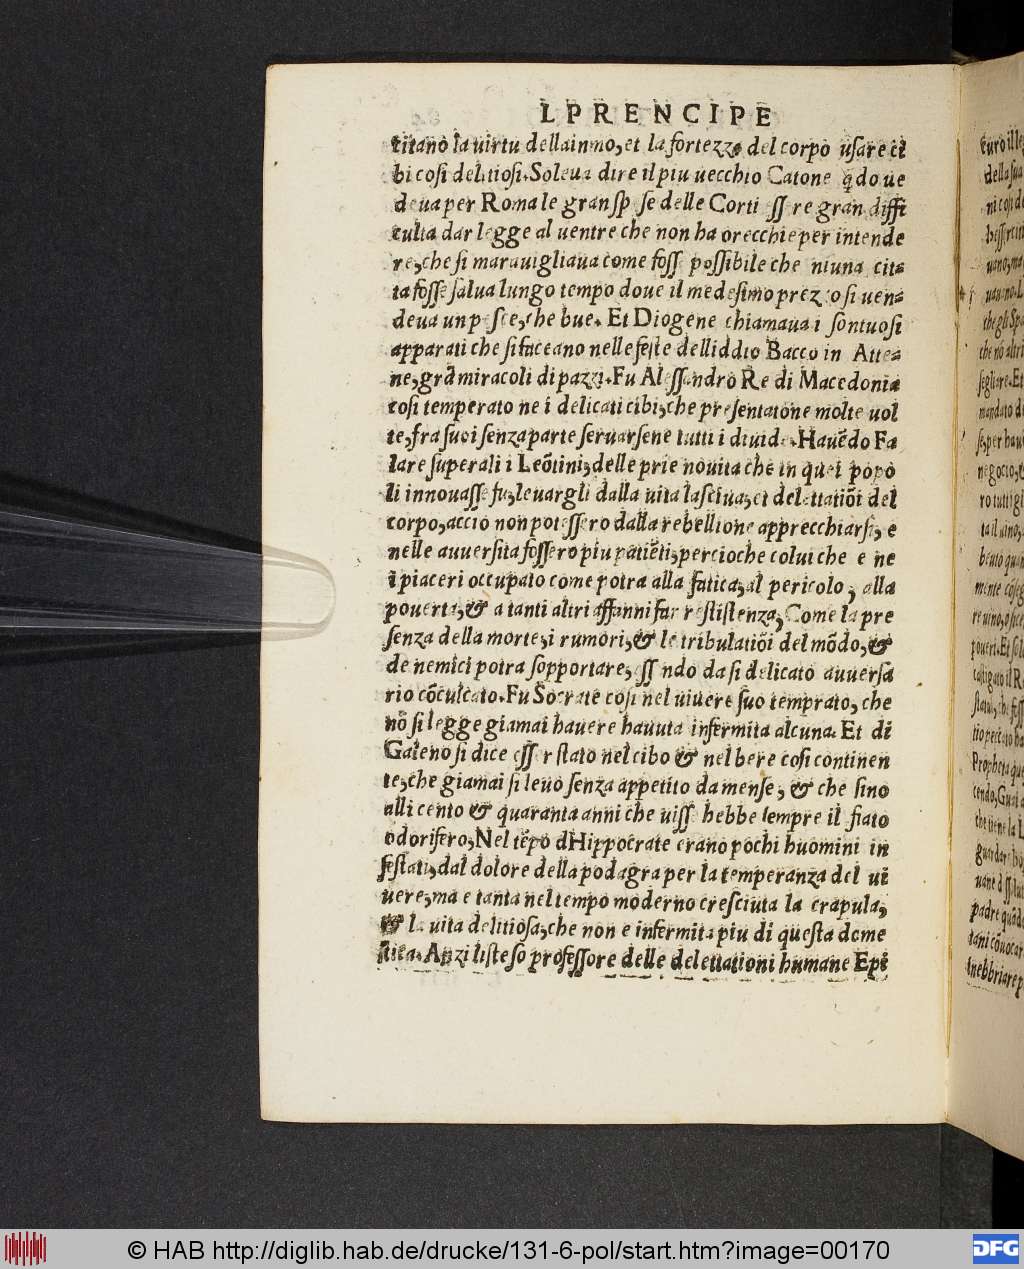 LPRENCIPE
titano la uirtu dellainmo, et la fortezza del corpo usare ci
bi cosi delitiosi. Soleua dire il piu uecchio Catone q̃do ue
deua per Roma le gran sp se delle Corti ss re gran diffi
culta dar legge al uentre che non ha orecchie per intende
re, che si marauigliaua come foss possibile che niuna cit=
ta fosse salua lungo tempo doue il medesimo prezzo si uen=
deua un pesce, che bue. Et Diogene chiamaua i sontuosi
apparati che si faceano nelle feste delliddio Bacco in Atte=
ne, grã miracoli di pazzi. Fu Alessandro Re di Macedonia
cosi temperato ne i delicati cibi, che presentatone molte uol
te, fra suoi senza parte seruarsene tutti i diuide. Hauẽdo Fa
lare superati i Leõtini, delle prie nouita che in quei popo
li innouasse fu, leuargli dalla uita lasciua, et delettatiõi del
corpo, accio non potessero dalla rebellione apprecchiarsi, e
nelle auuersita fossero piu patiẽti, percioche colui che e ne
i piaceri occupato come potra alla fatica, al pericolo, alla
pouerta, & a tanti altri affanni far restistenza, Come la pre
senza della morte, i rumori, & le tribulatiõi del mõdo, &
de nemici potra sopportare, ess ndo da si delicato auuersa
rio cõculcato. Fu Socrate cosi nel uiuere suo temprato, che
nõ si legge giamai hauere hauuta infermita alcuna. Et di
Galeno si dice esser stato nel cibo & nel bere cosi continen
te, che giamai si leuo senza appetito da mense, & che sino
alli cento & quaranta anni che uiss hebbe sempre il fiato
odorifero, Nel tẽpo dHippocrate erano pochi huomini in
festati, dal dolore della podagra per la temperanza del ui
uere, ma e tanta nel tempo moderno cresciuta la crapula,
& la uita delitiosa, che non e infermita piu di questa dome
stica. Anzi listeso professore delle delettationi humane Epi
© HAB http://diglib.hab.de/drucke/131-6-pol/start.htm?image=00170
DFG